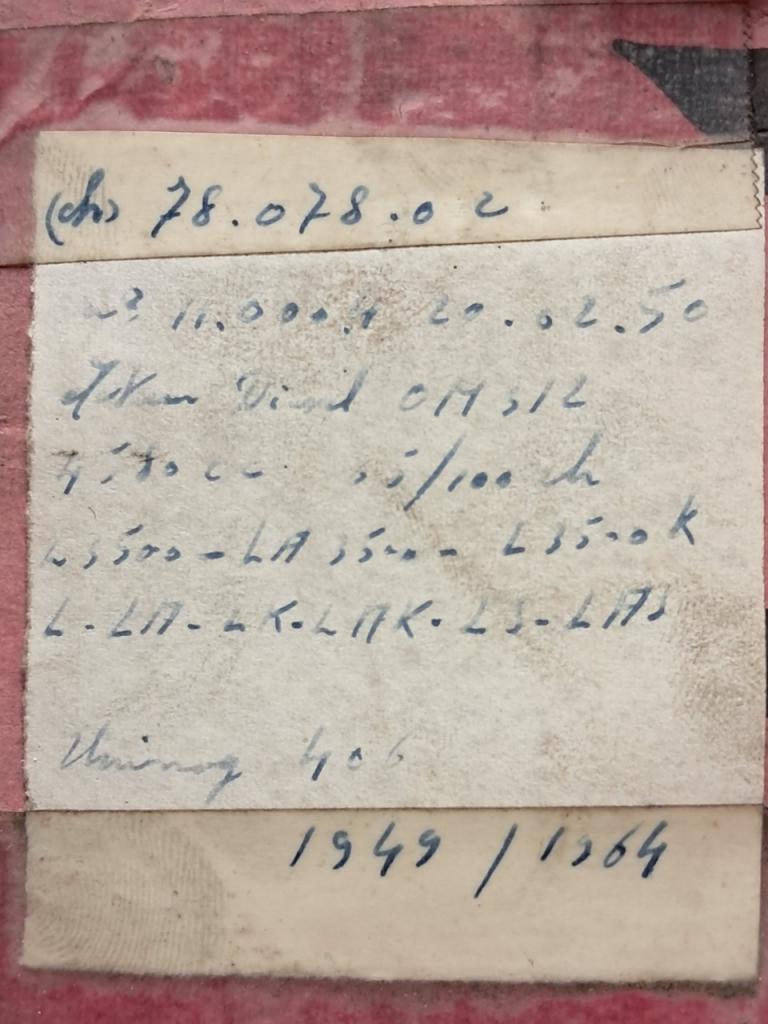 (ch) 78.078.02
n° 11.000.4 20.02.50
Diesel OM 312
4580 cc 95/100 ch
L3500 - LA 3500 - L3500K
L - LA - LK - LAK - LS - LAS
Unimog 406
1949 / 1964